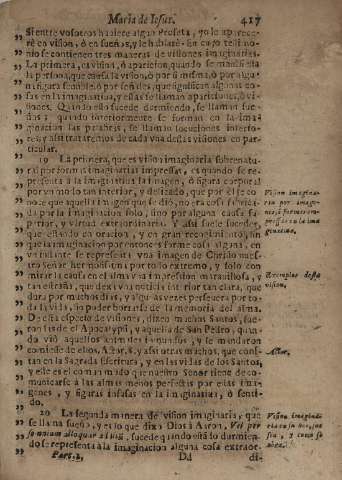 Maria de Iesus. 417
„ Si entre vosotros huuiere algun Profeta, yo le aparece-
„ rè en vision, ò en sueños, y le hablarè. En cuyo testimo-
„ nio se contienen tres maneras de visiones imaginarias.
„ La primera, es vision, ò aparicion, quando se manifiesta
„ la persona, que causa la vision, ò por si misma, ò por algu-
„ na figura sensible, ò por señales, que significan algunas co-
„ sas en la imaginatiua, y essas se llaman apariciones, ò vi-
„ siones. Quando ello sucede durmiendo, se llaman sue-
„ ños; y quando interiormente se forman en la ima-
„ ginacion las palabras, se llaman locuciones interio-
„ res, y assi trataremos de cada vna destas visiones en par-
„ ticular.
„ 19 La primera, que es vision imaginaria sobrenatu-
„ ral por formas imaginarias impressas, es quando se re-
„ presenta à la imaginatiua la imagen, ò figura corporal
„ por vn modo tan interior, y delicado, que por èl se co-
„ noce que aquella imagen que se diò, no era cosa fabrica-
„ da por la imaginacion solo, sino por alguna causa su-
„ perior, y virtud extraordinaria. Y assi suele suceder,
„ que estando en oracion, y en gran recogimiento, sin
„ que la imaginacion por entonces forme cosa alguna, en
„ vn instante se representa vna imagen de Christo nuestro
„ Señor hermosissima por todo extremo, y solo con
„ mirar la causa en el alma vna impression marauillosa, y
„ tan estraña, que dexa vna noticia interior tan clara, que
„ dura por muchos dias, y algunas vezes perseuera por to-
„ da la vida, sin poder borrarse de la memoria del alma.
„ De esta especie de visiones, dizen muchos Santos, fue-
„ ron las de el Apocalypsi, y aquella de San Pedro, quan-
„ do viò aquellos animales inmundos, y le mandaron
„ comiesse de ellos, Actor. 8. y assi otras muchas, que cons-
„ tan en la Sagrada Escritura, y en las vidas de los Santos,
„ y este es el comun modo que nuestro Señor tiene de co-
„ municarse à las almas menos perfectas por estas ima-
„ genes, y figuras infusas en la imaginatiua, ò senti-
„ do.
„ 20 La segunda manera de vision imaginaria, que
„ se llama sueño, y es lo que dixo Dios à Aaron, Vel per
„ somnium alloquar ad illũ, sucede quando està durmien-
„ do se representa à la imaginacion alguna cosa extraor-
Part. 2. Dd di-
Vision imagina-
ria por image-
nes, ò formas im-
pressas en la ima
ginatiua.
Exemplos desta
vision.
Actor.
Vision imagina-
ria en
sea, y como se